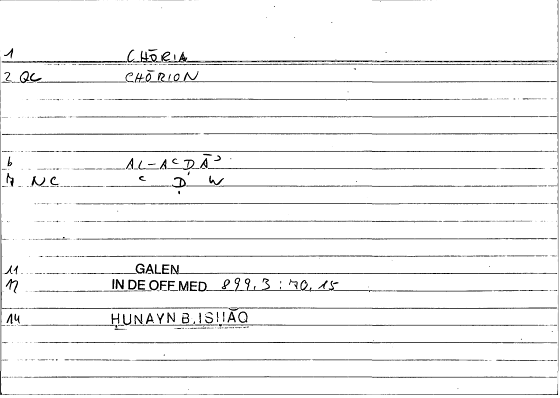 1 CHŌRIA
2 QC CHŌRION
6 AL-AᶜDĀʾ
7 NC ᶜ Ḍ W
11 GALEN
12 IN DE OFF MED 899,3 : 70,15
14 ḤUNAYN B. ISḤĀQ